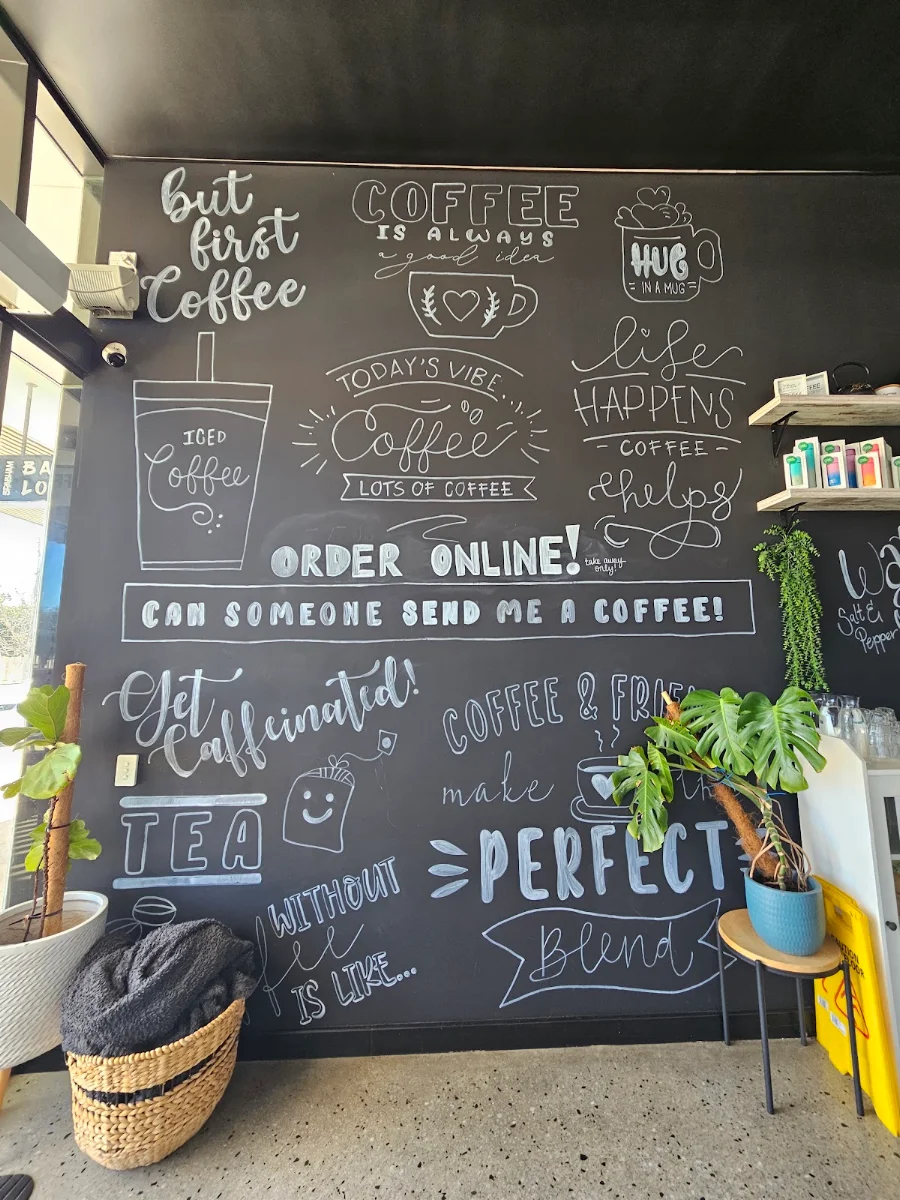 but
first
Coffee
COFFEE
IS ALWAYS
a good idea
HUG
IN A MUG
ICED
Coffee
TODAY'S VIBE
Coffee
LOTS OF COFFEE
life
HAPPENS
COFFEE
helps
ORDER ONLINE!
take away
only!
CAN SOMEONE SEND ME A COFFEE!
Get
Caffeinated!
TEA
WITHOUT
IS LIKE...
COFFEE &
make
PERFECT
Blend
Salt &
Pepper